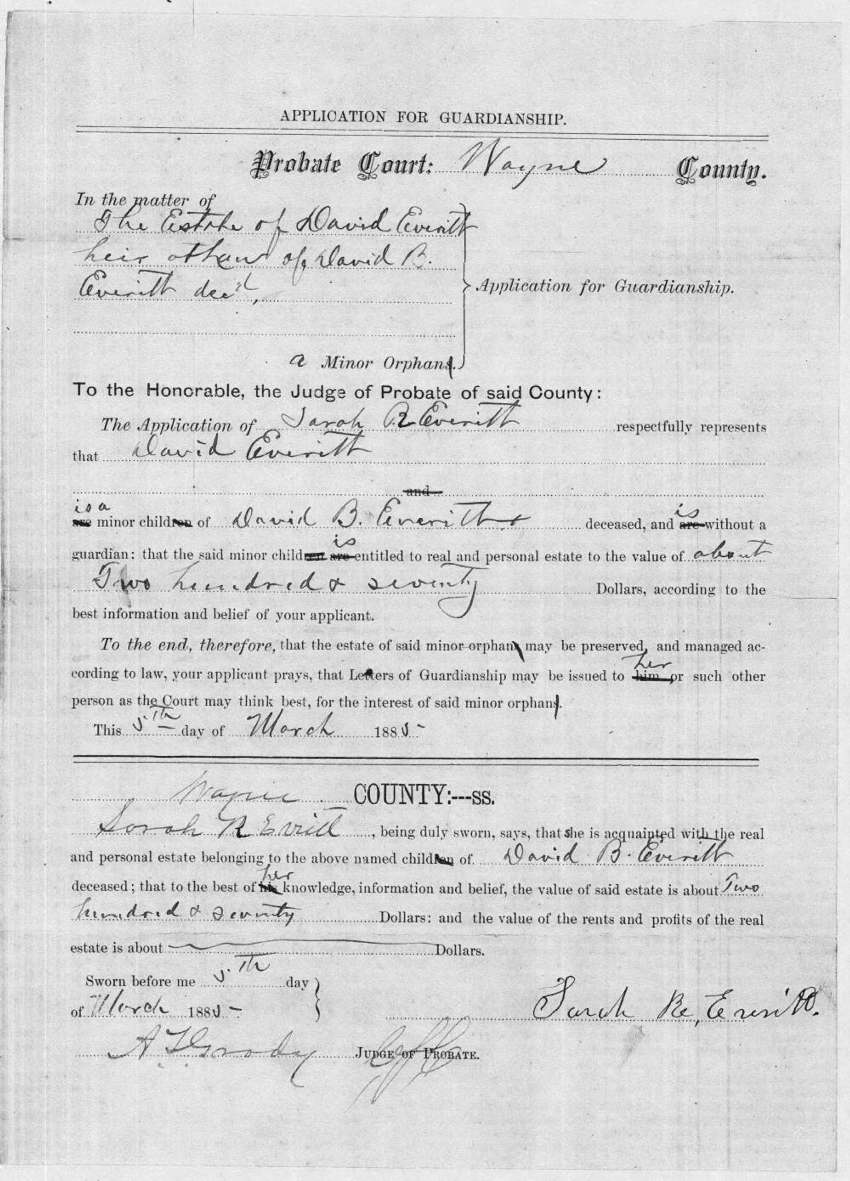 APPLICATION FOR GUARDIANSHIP.
Probate Court: Wayne County.
In the matter of
The Estate of David Everitt
heir of David B.
Everitt dec'd,
Application for Guardianship.
a Minor Orphans.
To the Honorable, the Judge of Probate of said County:
The Application of Sarah R Everitt respectfully represents
that David Everitt
and
is a is
are minor children of David B. Everitt deceased, and are without a
is
guardian: that the said minor children are entitled to real and personal estate to the value of about
Two hundred & seventy Dollars, according to the
best information and belief of your applicant.
To the end, therefore, that the estate of said minor orphans may be preserved, and managed ac-
her
cording to law, your applicant prays, that Letters of Guardianship may be issued to him or such other
person as the Court may think best, for the interest of said minor orphans.
This 5th day of March 1885
Wayne COUNTY:---ss.
Sarah R Evritt, being duly sworn, says, that she is acquainted with the real
and personal estate belonging to the above named children of David B. Everitt
her
deceased; that to the best of his knowledge, information and belief, the value of said estate is about Two
hundred & seventy Dollars: and the value of the rents and profits of the real
estate is about Dollars.
Sworn before me 5th day
of March 1885
Sarah R. Everitt.
A T Grady JUDGE OF PROBATE.